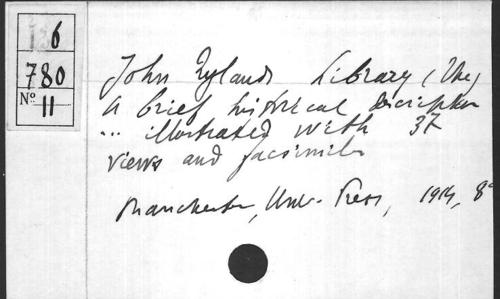 6
780
No 11
John Rylands Library (The)
A brief historical description
... illustrated with 37
views and facsimiles
Manchester, Univ. Press, 1914, 8º